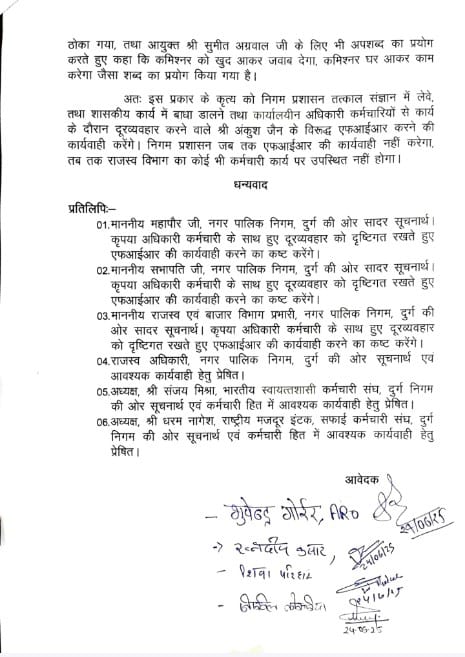 ठोका गया, तथा आयुक्त श्री सुमीत अग्रवाल जी के लिए भी अपशब्द का प्रयोग
करते हुए कहा कि कमिश्नर को खुद आकर जवाब देगा, कमिश्नर घर आकर काम
करेगा जैसा शब्द का प्रयोग किया गया है।
अतः इस प्रकार के कृत्य को निगम प्रशासन तत्काल संज्ञान में लेवे,
तथा शासकीय कार्य में बाधा डालने तथा कार्यालयीन अधिकारी कर्मचारियों से कार्य
के दौरान दूरव्यवहार करने वाले श्री अंकुश जैन के विरूद्ध एफआईआर करने की
कार्यवाही करेंगे। निगम प्रशासन जब तक एफआईआर की कार्यवाही नहीं करेगा,
तब तक राजस्व विभाग का कोई भी कर्मचारी कार्य पर उपस्थित नहीं होगा।
धन्यवाद
प्रतिलिपिः–
01.माननीय महापौर जी, नगर पालिक निगम, दुर्ग की ओर सादर सूचनार्थ।
कृपया अधिकारी कर्मचारी के साथ हुए दूरव्यवहार को दृष्टिगत रखते हुए
एफआईआर की कार्यवाही करने का कष्ट करेंगे।
02.माननीय सभापति जी, नगर पालिक निगम, दुर्ग की ओर सादर सूचनार्थ।
कृपया अधिकारी कर्मचारी के साथ हुए दूरव्यवहार को दृष्टिगत रखते हुए
एफआईआर की कार्यवाही करने का कष्ट करेंगे।
03.माननीय राजस्व एवं बाजार विभाग प्रभारी, नगर पालिक निगम, दुर्ग की
ओर सादर सूचनार्थ। कृपया अधिकारी कर्मचारी के साथ हुए दूरव्यवहार
को दृष्टिगत रखते हुए एफआईआर की कार्यवाही करने का कष्ट करेंगे।
04.राजस्व अधिकारी, नगर पालिक निगम, दुर्ग की ओर सूचनार्थ एवं
आवश्यक कार्यवाही हेतु प्रेषित।
05.अध्यक्ष, श्री संजय मिश्रा, भारतीय स्वायत्तशासी कर्मचारी संघ, दुर्ग निगम
की ओर सूचनार्थ एवं कर्मचारी हित में आवश्यक कार्यवाही हेतु प्रेषित।
06.अध्यक्ष, श्री धरम नागेश, राष्ट्रीय मजदूर इंटक, सफाई कर्मचारी संघ, दुर्ग
निगम की ओर सूचनार्थ एवं कर्मचारी हित में आवश्यक कार्यवाही हेतु
प्रेषित।
आवेदक
– भुपेन्द्र गोईर, ARO 24/06/25
→ रत्नदीप कुमार, 24/06/25
– परिहार
24-06-25